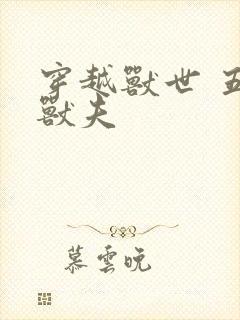 穿越獸世 五
獸夫
慕雲晚